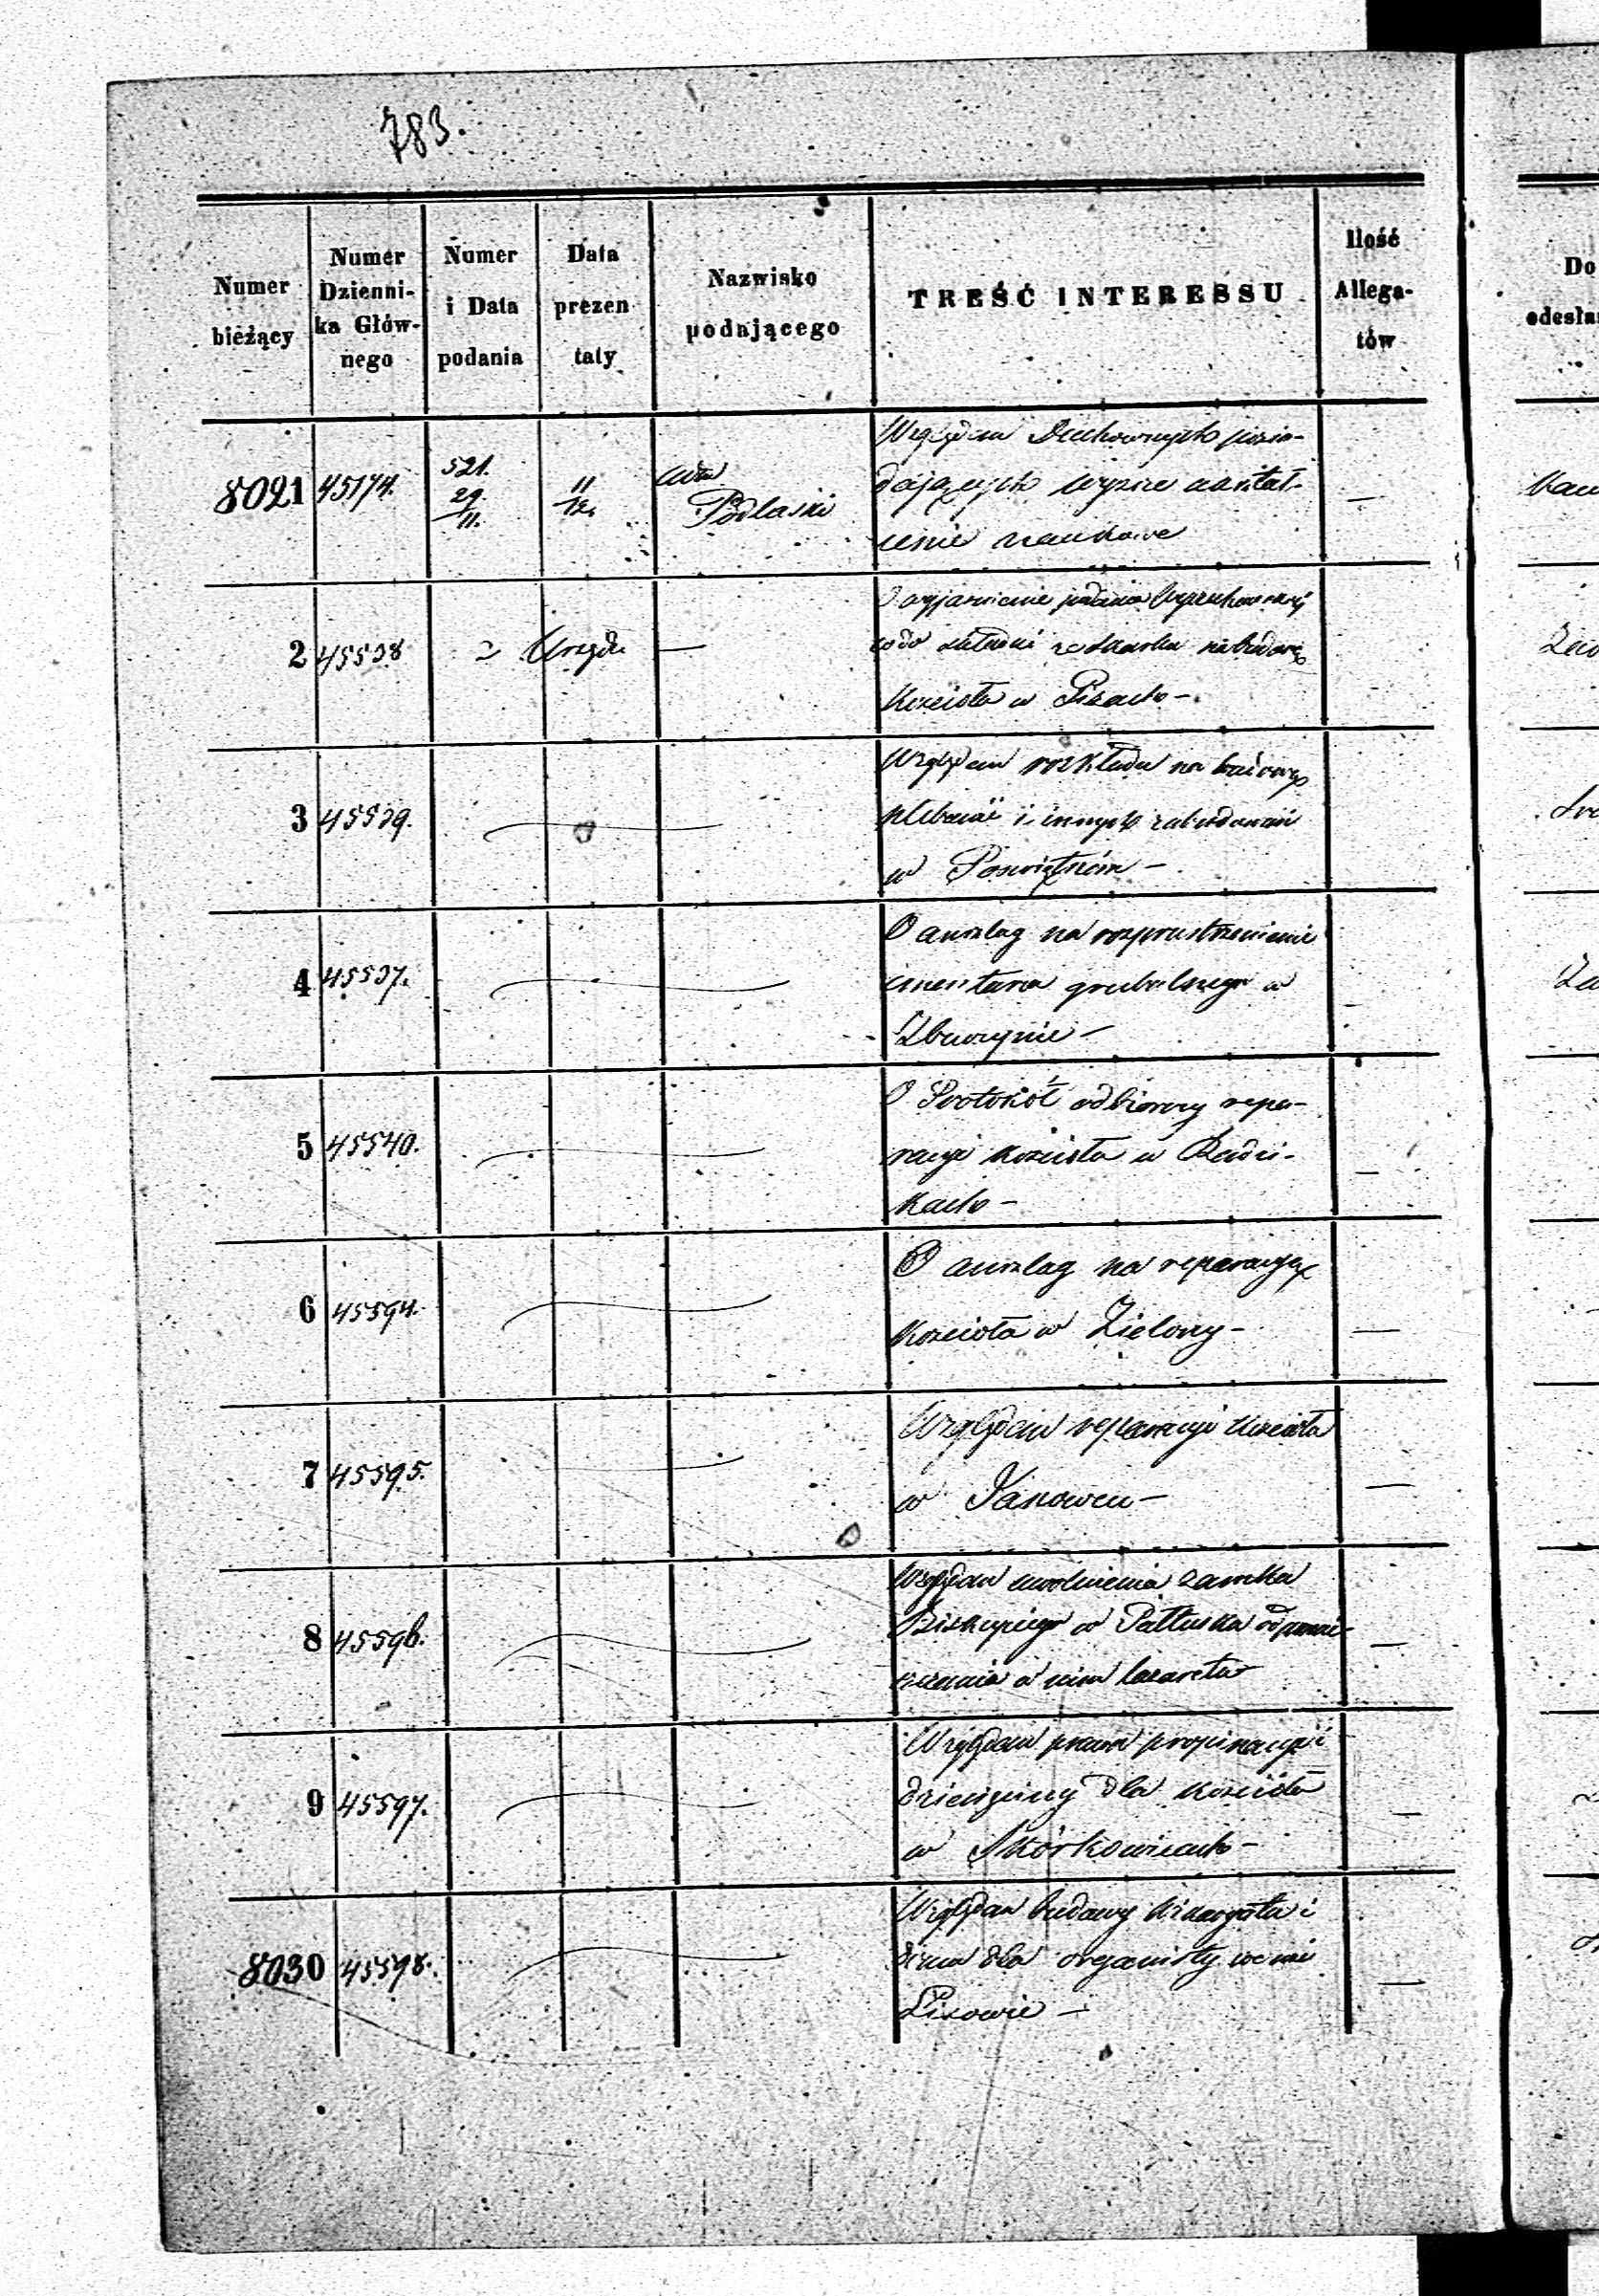 783.
Numer bieżący
Numer Dzienni-ka Głów-nego
Numer i Data podania
Data prezen taty
Nazwisko podającego
TREŚĆ INTERESSU
Ilość Allega-tów
Do
odesła
8021 45174. 521. 29/11. 11/12. Podlaski
Względem Duchownych posia-
dających wyższe ukształ-
cenie naukowe
2 45538 z Urzędu —
O wyjaśnienie podania
co do składki na budowę
Kościoła w —
3 45539.
Względem rozkładu na budowę
plebanii i innych zabudowań
w Poswiętnem —
4 45537.
O anszlag na rozprzestrzenienie
cmentarza grzebalnego w
Zbuczynie —
5 45540.
O Protokół odbiorczy repa-
racyi kościoła w Radzi-
kach —
6 45594.
O anszlag na reparacyę
Kościoła w Zielony —
7 45595.
Względem reparacyi Kościoła
w Janowcu —
8 45596.
Względem uwolnienia zamku
Biskupiego w Pułtusku od pomie-
szczenia w nim lazaretu
9 45597.
Względem prawa propinacyi i
dziesięciny dla kościoła
w Skórkowicach —
8030 45598.
Względem budowy i
domu dla organisty we wsi
Lisowie —